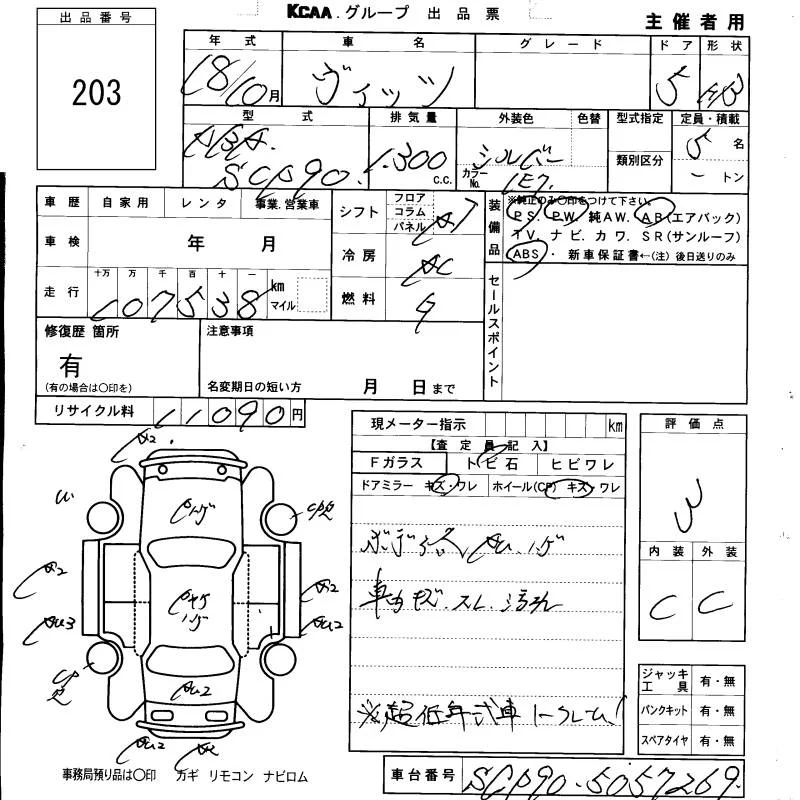 KCAA グループ 出品票
主催者用
出品番号
203
年式 車名 グレード ドア 形状
18/10月 ヴィッツ 5 HB
型式 排気量 外装色 色替 型式指定 定員・積載
ABA. SCP90. 1.300 c.c. シルバー 5名
カラーNo. 1E7. 類別区分 ートン
車歴 自家用 レンタ 事業.営業車
シフト フロア コラム パネル AT
装備品 ※純正のみ〇印をつけて下さい。
P S. P W. 純A W. A B(エアバック)
T V. ナ ビ. カ ワ. S R(サンルーフ)
ABS ・ 新車保証書←(注)後日送りのみ
車検 年 月
冷房 AC
走行 十万 万 千 百 十 一
107538 km マイル
燃料 G
セールスポイント
修復歴 箇所
有
(有の場合は〇印を)
注意事項
名変期日の短い方 月 日まで
リサイクル料 11090円
現メーター指示 km
【査定員記入】
Fガラス トビ石 ヒビワレ
ドアミラー キズ・ワレ ホイール(CP) キズ・ワレ
評価点
3
内装 外装
C C
ジャッキ工具 有・無
パンクキット 有・無
スペアタイヤ 有・無
※超低年式車 ノークレーム!
A2
A2
A2
AU3
AU2
AU2
AU2
事務局預り品は〇印 カギ リモコン ナビロム
車台番号 SCP90-5057269.